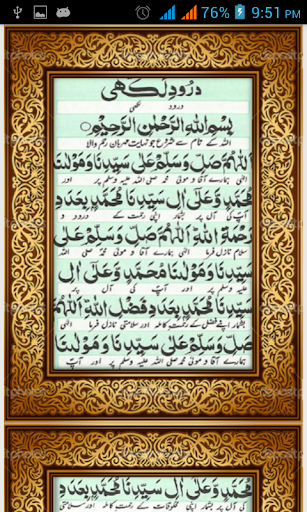 76% 9:51 PM
درود لکھی
درود لکھی
بِسْمِ اللهِ الرَّحْمٰنِ الرَّحِيْمِ
اللہ کے نام سے شروع جو نہایت مہربان رحم والا
اَللّٰهُمَّ صَلِّ وَسَلِّمْ عَلٰى سَيِّدِنَا وَمَوْلٰنَا
الٰہی ہمارے آقا و مولیٰ محمد صلی اللہ علیہ وسلم پر اور
مُحَمَّدٍ وَّعَلٰى اٰلِ سَيِّدِنَا مُحَمَّدٍ بِعَدَدِ
آپ کی آل پر بشمار اپنی رحمت کے درود و
رَحْمَةِ اللهِ اَللّٰهُمَّ صَلِّ وَسَلِّمْ عَلٰى
سلام نازل فرما الٰہی ہمارے آقا و مولیٰ محمد صلی اللہ
سَيِّدِنَا وَمَوْلٰنَا مُحَمَّدٍ وَّعَلٰى اٰلِ
علیہ وسلم پر اور آپ کی
سَيِّدِنَا مُحَمَّدٍ بِعَدَدِ فَضْلِ اللهِ اَللّٰهُمَّ
بشمار اپنے فضل کے رحمت کاملہ اور سلامتی نازل فرما الٰہی
صَلِّ وَسَلِّمْ عَلٰى سَيِّدِنَا وَمَوْلٰنَا
ہمارے آقا و مولیٰ محمد صلی اللہ علیہ وسلم پر اور
مُحَمَّدٍ وَّعَلٰى اٰلِ سَيِّدِنَا مُحَمَّدٍ بِعَدَدِ
کی آل پر بشمار اپنی مخلوقات کے رحمت کاملہ اور سلامتی